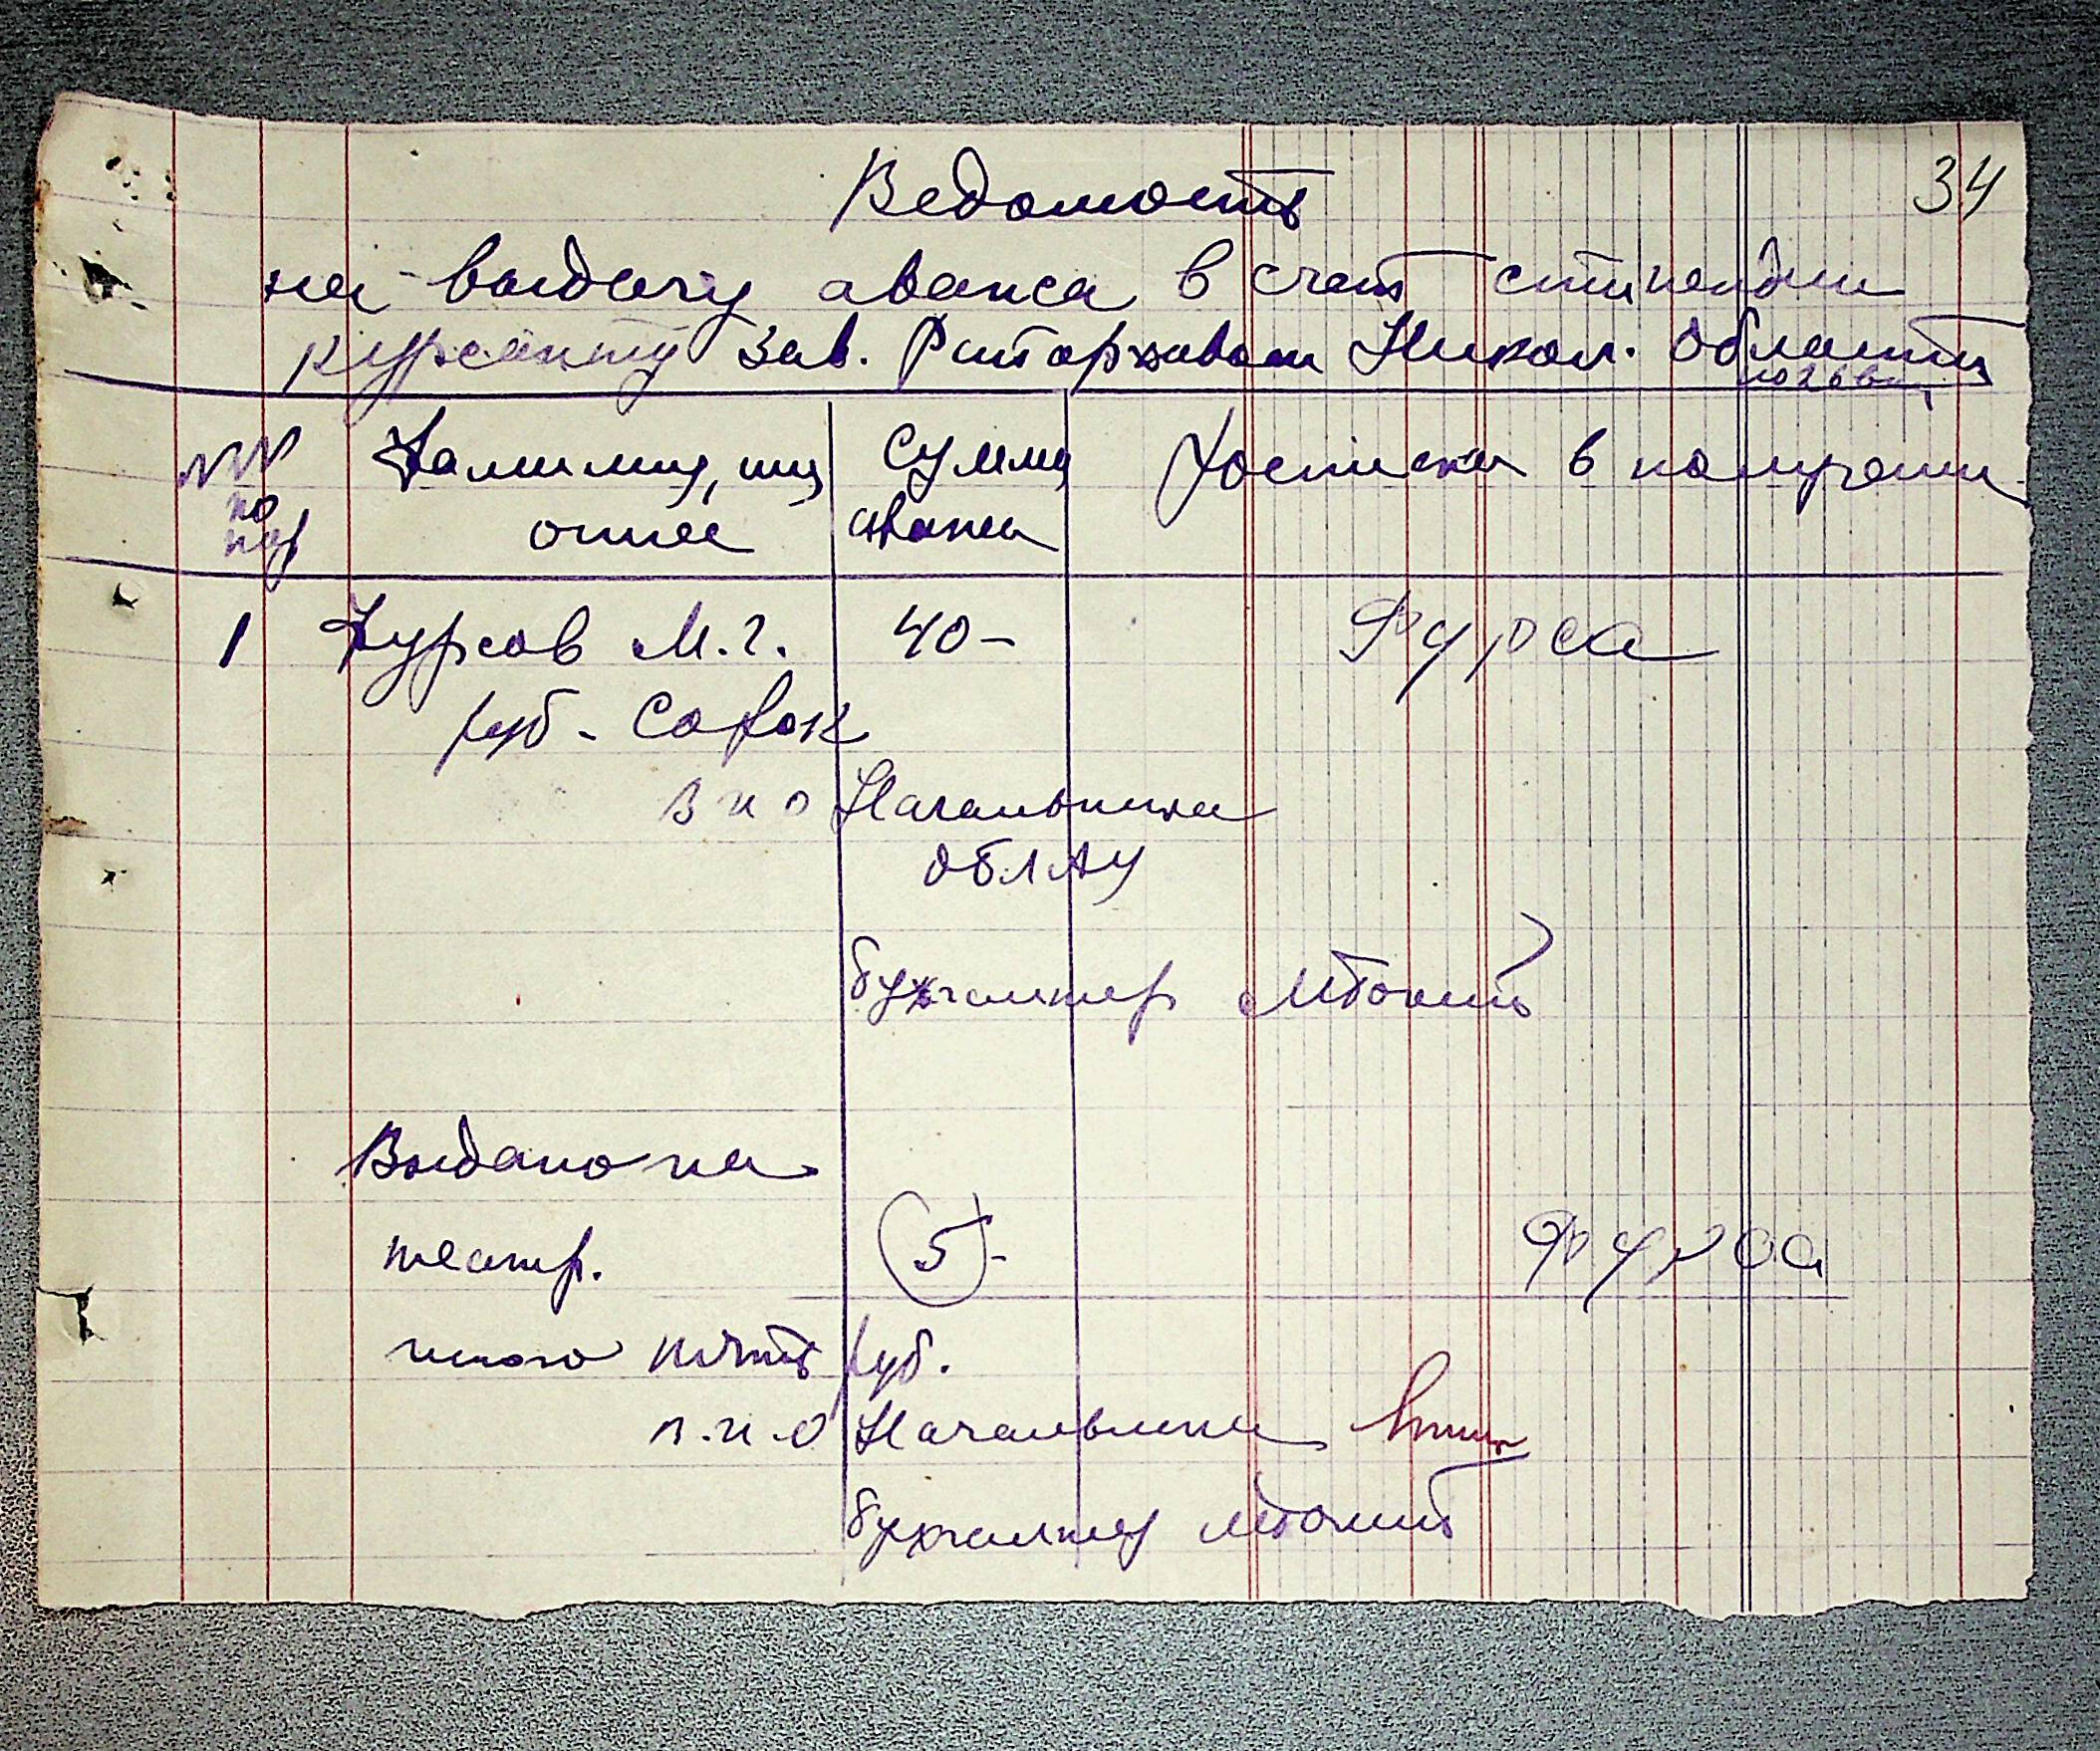 34
Ведомость
на выдачу аванса в счет стипендии
курсанту зав. Райархивом Никол. области
№№ по пор
Фамилия, имя отчес
Сумма аванса
Росписка в получении
1 Фурсов М.Г. 40- Фурса
руб - сорок
в и о Начальника
ОБЛАУ
бухгалтер
Выдано на
театр. 5- Фурса
итого пять руб.
в.и.о Начальника
бухгалтер